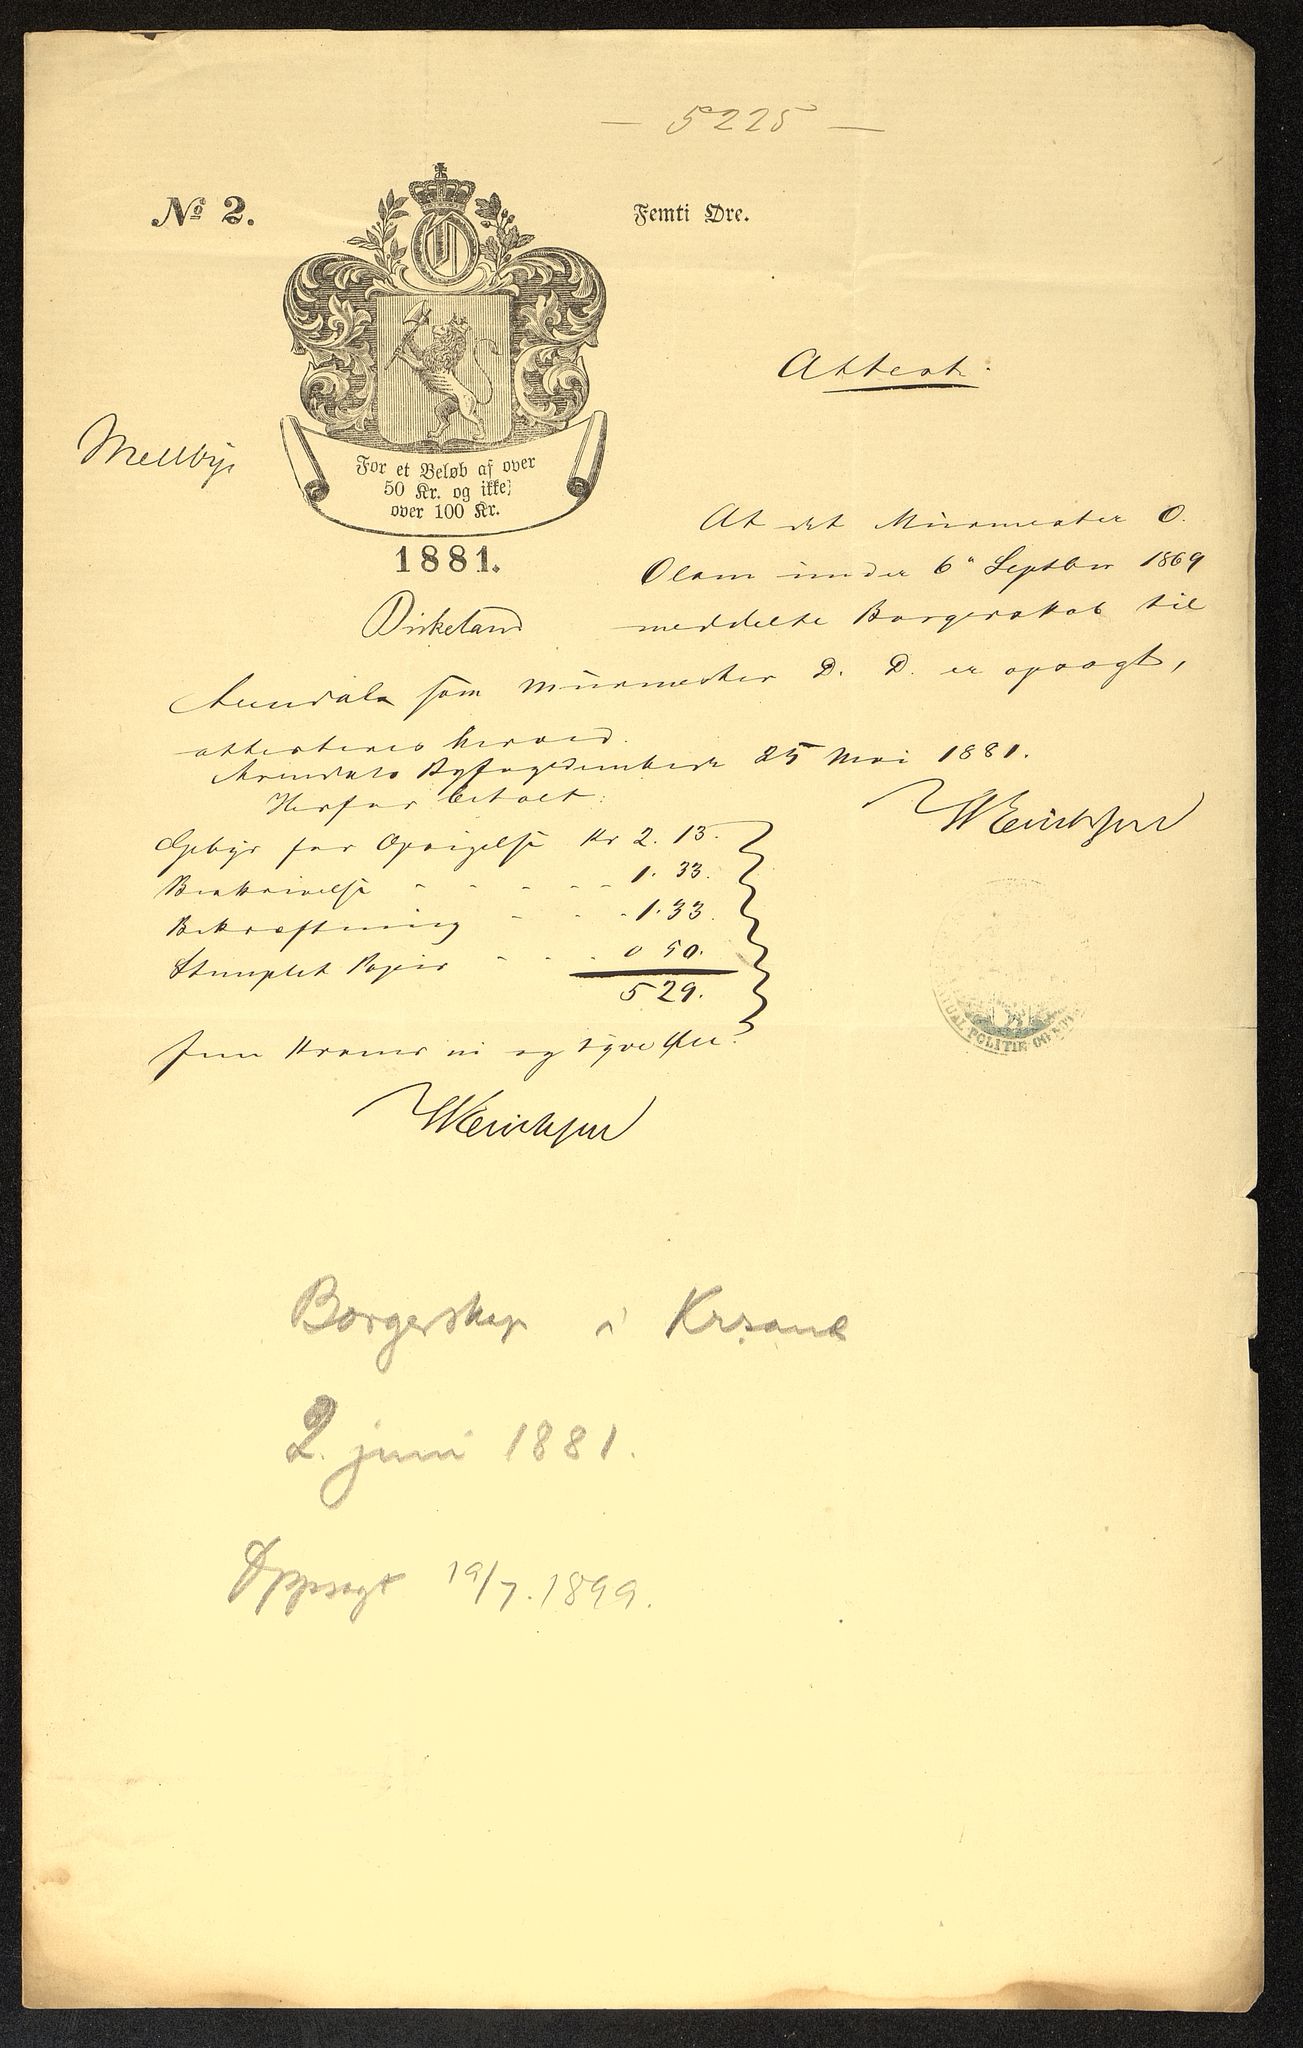 — 5225 —
No 2.
Femti Øre.
Attest.
Mellbye
For et Beløb af over
50 Kr. og ikke
over 100 Kr.
1881.
At det Muurmester O.
Olsen under 6te Septber 1869
Birkeland meddelte Borgerskab til
Arendal som Muurmester D. D. er opsagt,
attesteres herved.
Arendals Byfogedembede 25 Mai 1881.
WErichsen
Herfor betalt:
Gebyr for Opsigelse Kr 2. 13.
Beskrivelse - - - - - 1. 33.
Bekræftning - - - 1. 33.
Stemplet Papir - - - 0 50.
5 29.
fem Kroner ni og tyve Øre.
WErichsen
POLITIE-OG
Borgerskap i Krsand
2. juni 1881.
Oppsagt 19/7. 1899.